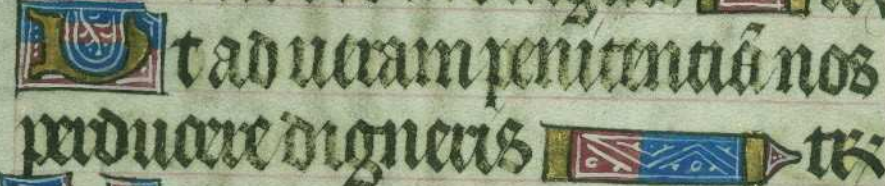 Ut ad ueram penitentiā nos
perducere digneris te